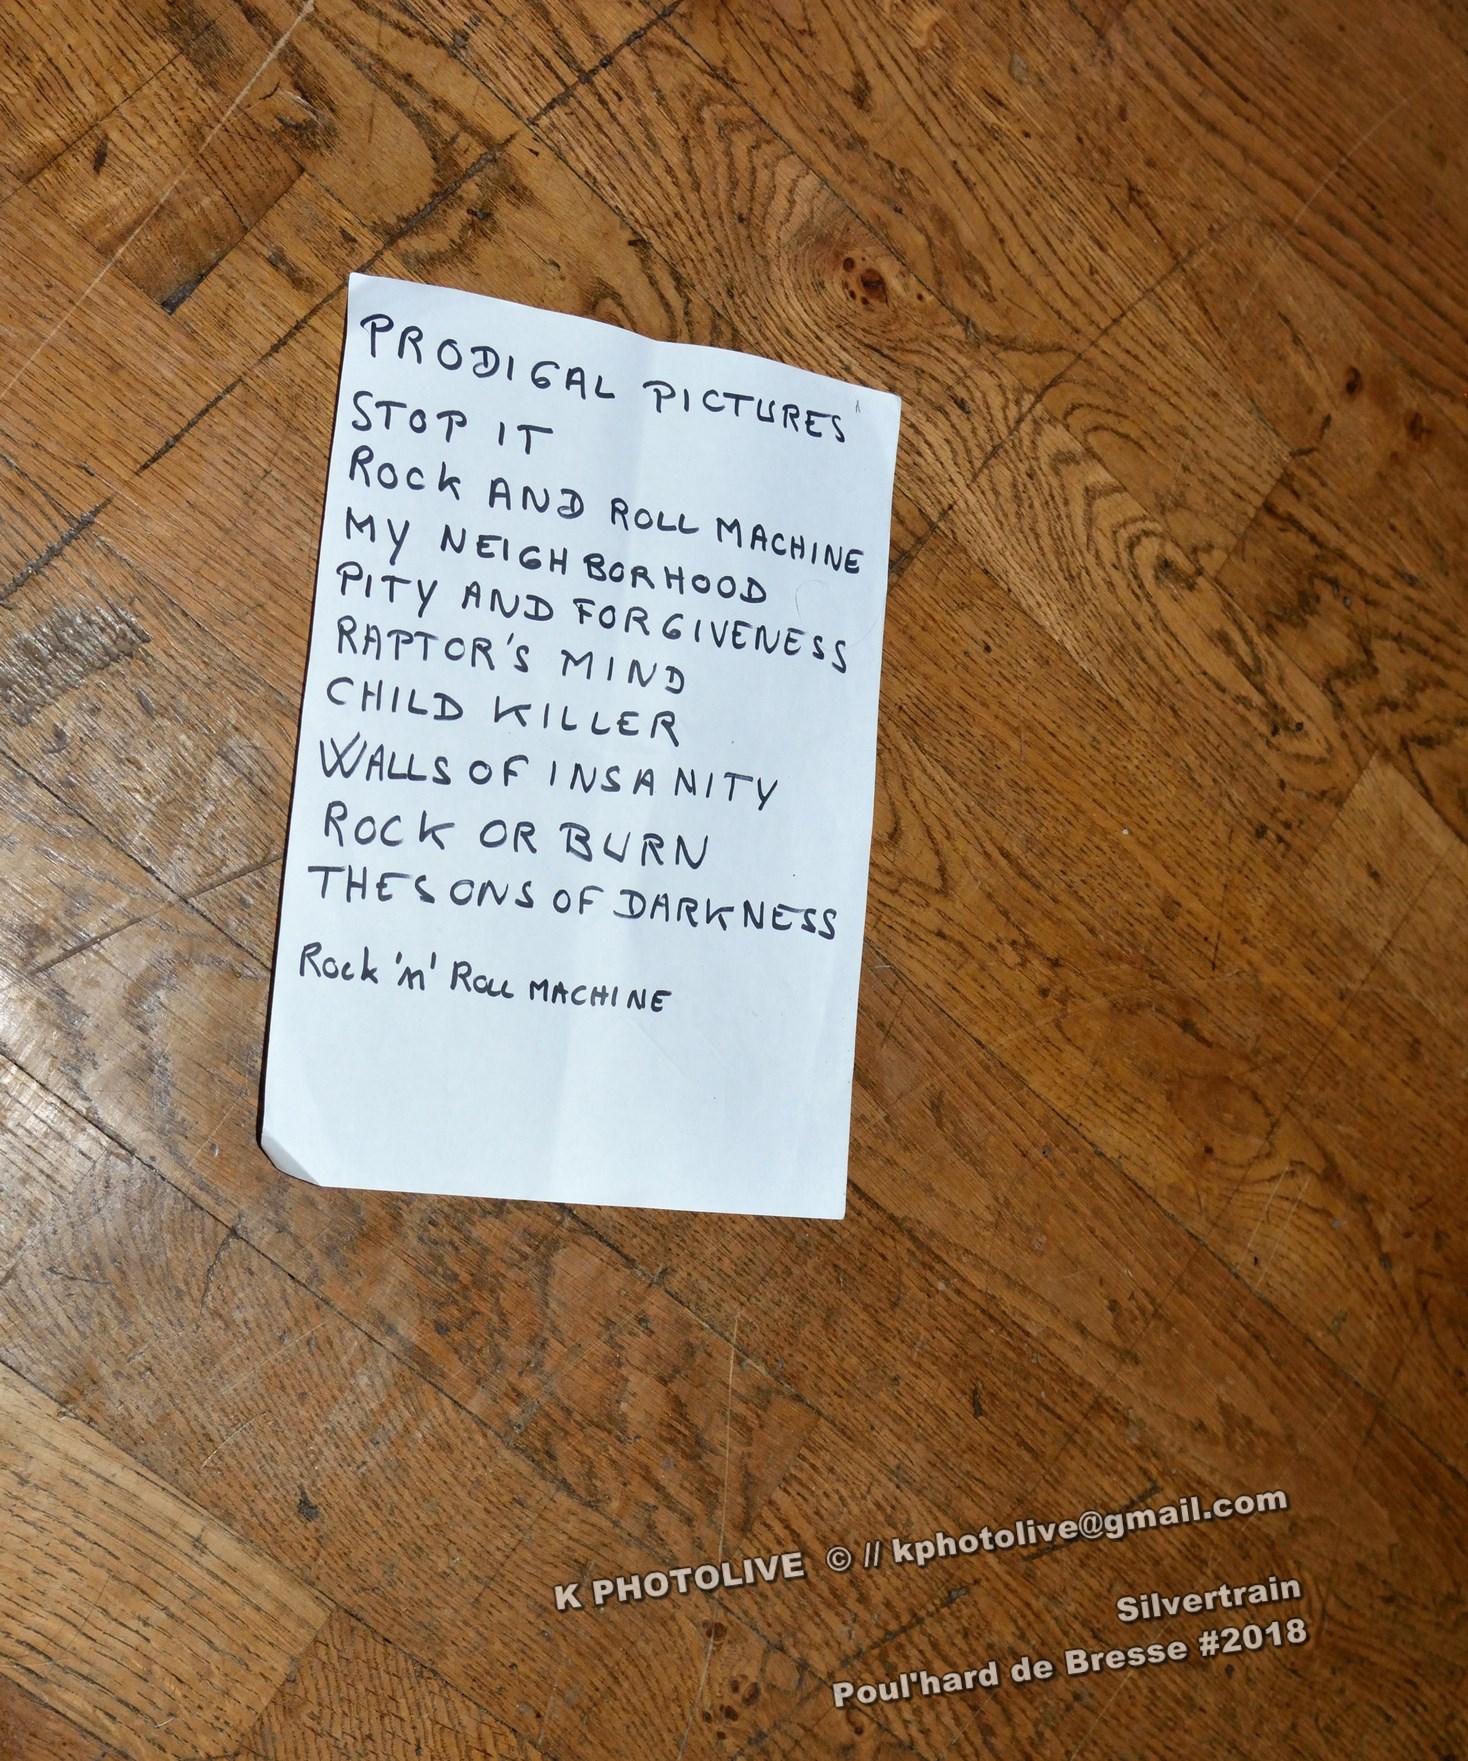 PRODIGAL PICTURES
STOP IT
ROCK AND ROLL MACHINE
MY NEIGHBORHOOD
PITY AND FORGIVENESS
RAPTOR'S MIND
CHILD KILLER
WALLS OF INSANITY
ROCK OR BURN
THE SONS OF DARKNESS
Rock 'n' Roll MACHINE
K PHOTOLIVE © // kphotolive@gmail.com
Silvertrain
Poul'hard de Bresse #2018